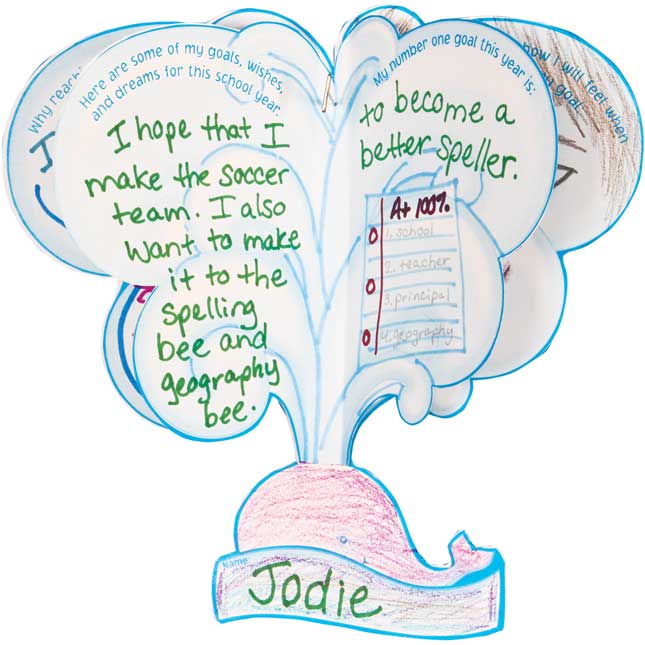 Why reachi
Here are some of my goals, wishes,
and dreams for this school year.
I hope that I
make the soccer
team. I also
want to make
it to the
spelling
bee and
geography
bee.
My number one goal this year is:
to become a
better speller.
A+ 100%
1. school
2. teacher
3. principal
4. geography
how I will feel when
goal.
Name
Jodie